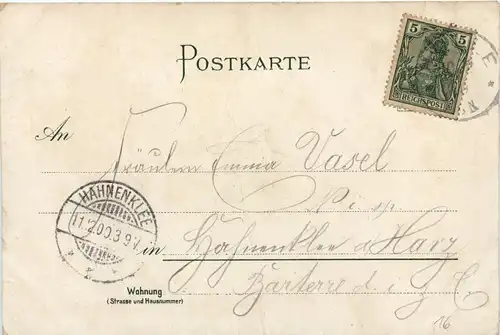 POSTKARTE
5 5
REICHSPOST
An
Fräulein Emma Vasel
HAHNENKLEE
11 2.00.3 9 V.
in Hahnenklee a Harz
Wohnung
(Strasse und Hausnummer)
16